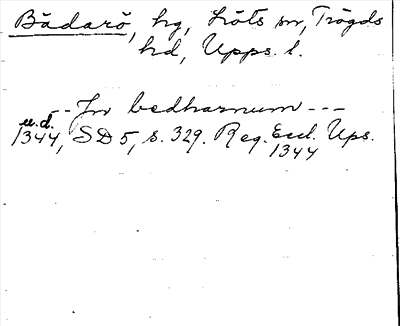 Bådarö, hg, Löts sn, Trögds
hd, Upps. l.
-- Jn bedharnum ---
u.d.
1344, SD 5, s. 329. Reg. Eccl. Ups.
1344